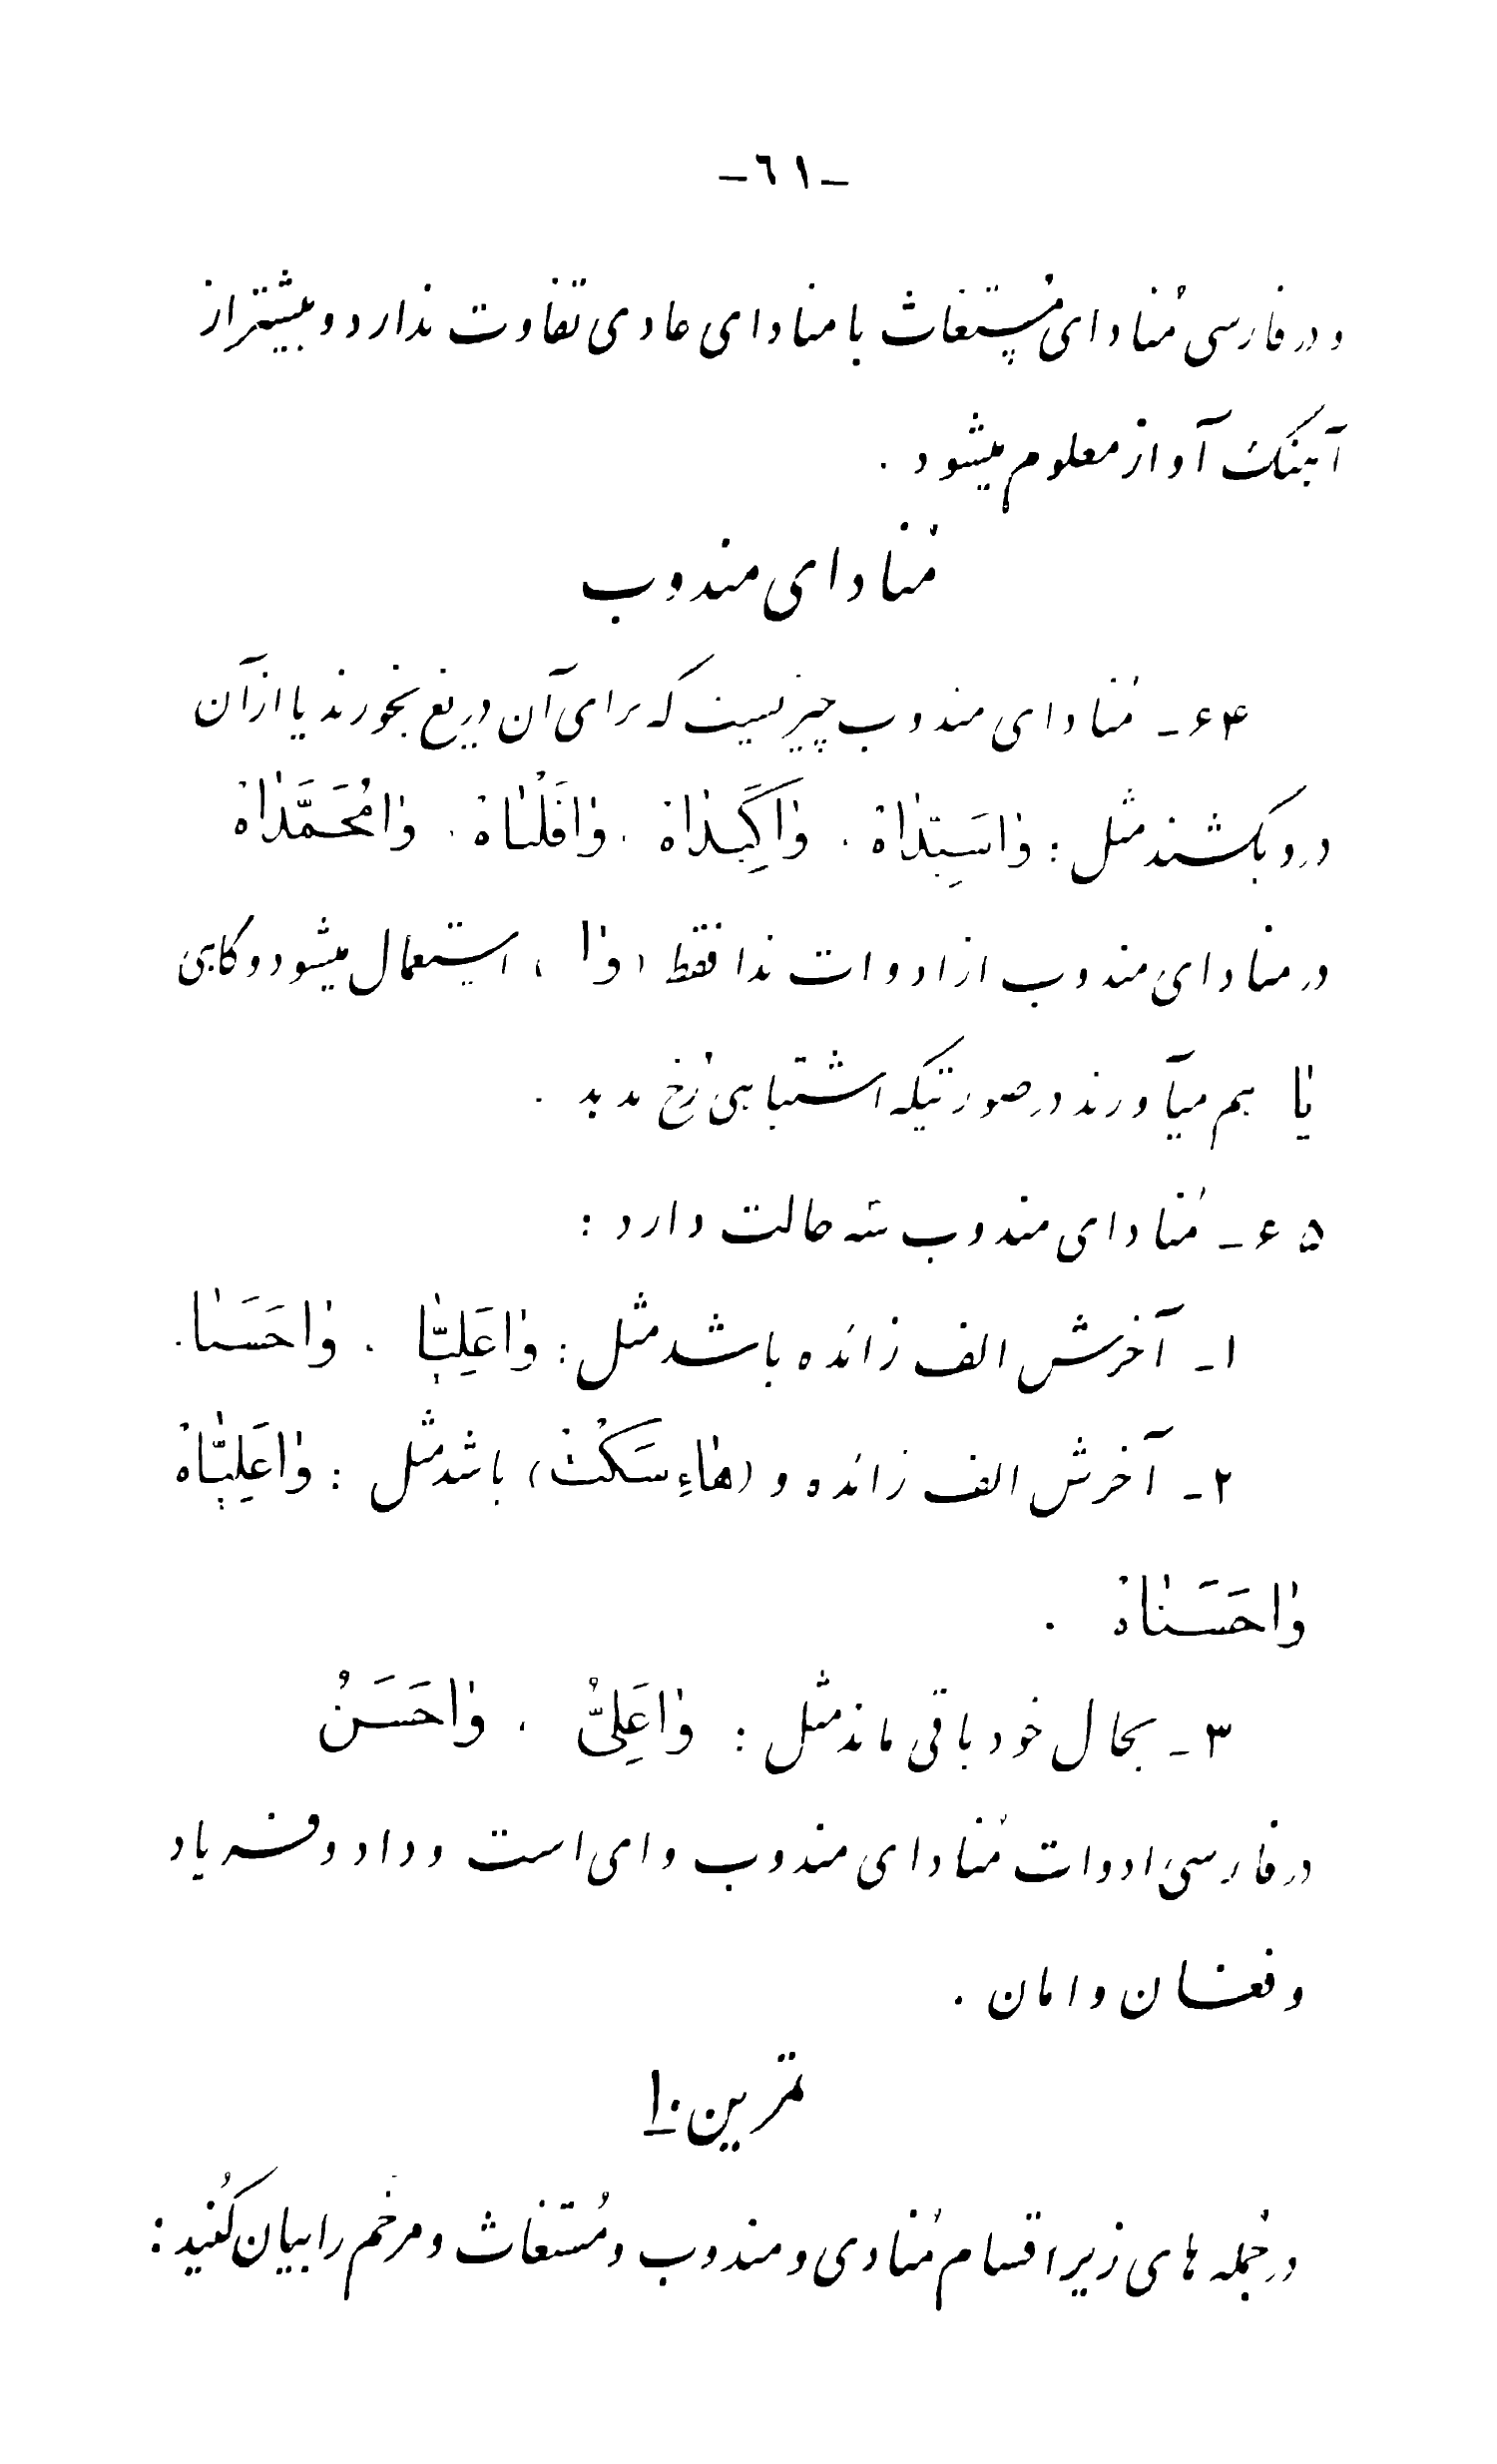 -٦١-
و در فارسی مُنادای مُستغاث با منادای عادی تفاوت ندارد و بیشتر از
آهنگ آواز معلوم میشود .
مُنادای مندوب
۶۴- مُنادای مندوب چیزیست که برای آن دریغ بخورند یا از آن
درد بکشند مثل : وٰاسَیِّدٰاهْ . وٰاکَبِدٰاهْ . وٰاقَلْبٰاهْ . وٰامُحَمَّدٰاهْ
در منادای مندوب از ادوات ندا فقط (وٰا) استعمال میشود و گاهی
یٰا هم میآورند در صورتیکه اشتباهی رُخ ندهد .
۶۵- مُنادای مندوب سَه حالت دارد :
۱- آخرش الف زائده باشد مثل : وٰاعَلِیّٰا . وٰاحَسَنٰا .
۲- آخرش الف زائده و (هٰاءِ سَکْتْ) باشد مثل : وٰاعَلِیّٰاهْ
وٰاحَسَنٰاهْ .
۳- بحال خود باقی ماند مثل : وٰاعَلِیُّ . وٰاحَسَنُ
در فارسی ادوات مُنادای مندوب وای است و داد و فریاد
و فغان و امان .
تمرین ۱۰
در جُمله های زیر اقسام مُنادی و مندوب و مُستغاث و مرخم را بیان کُنید :